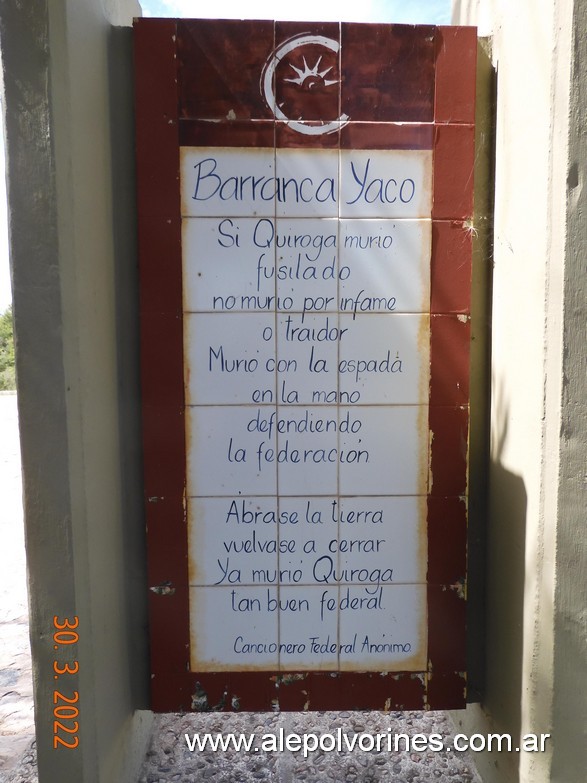 Barranca Yaco
Si Quiroga murio
fusilado
no murió por infame
o traidor
Murió con la espada
en la mano
defendiendo
la federación
Abrase la tierra
vuelvase a cerrar
Ya murió Quiroga
tan buen federal.
Cancionero Federal Anónimo
30. 3. 2022
www.alepolvorines.com.ar